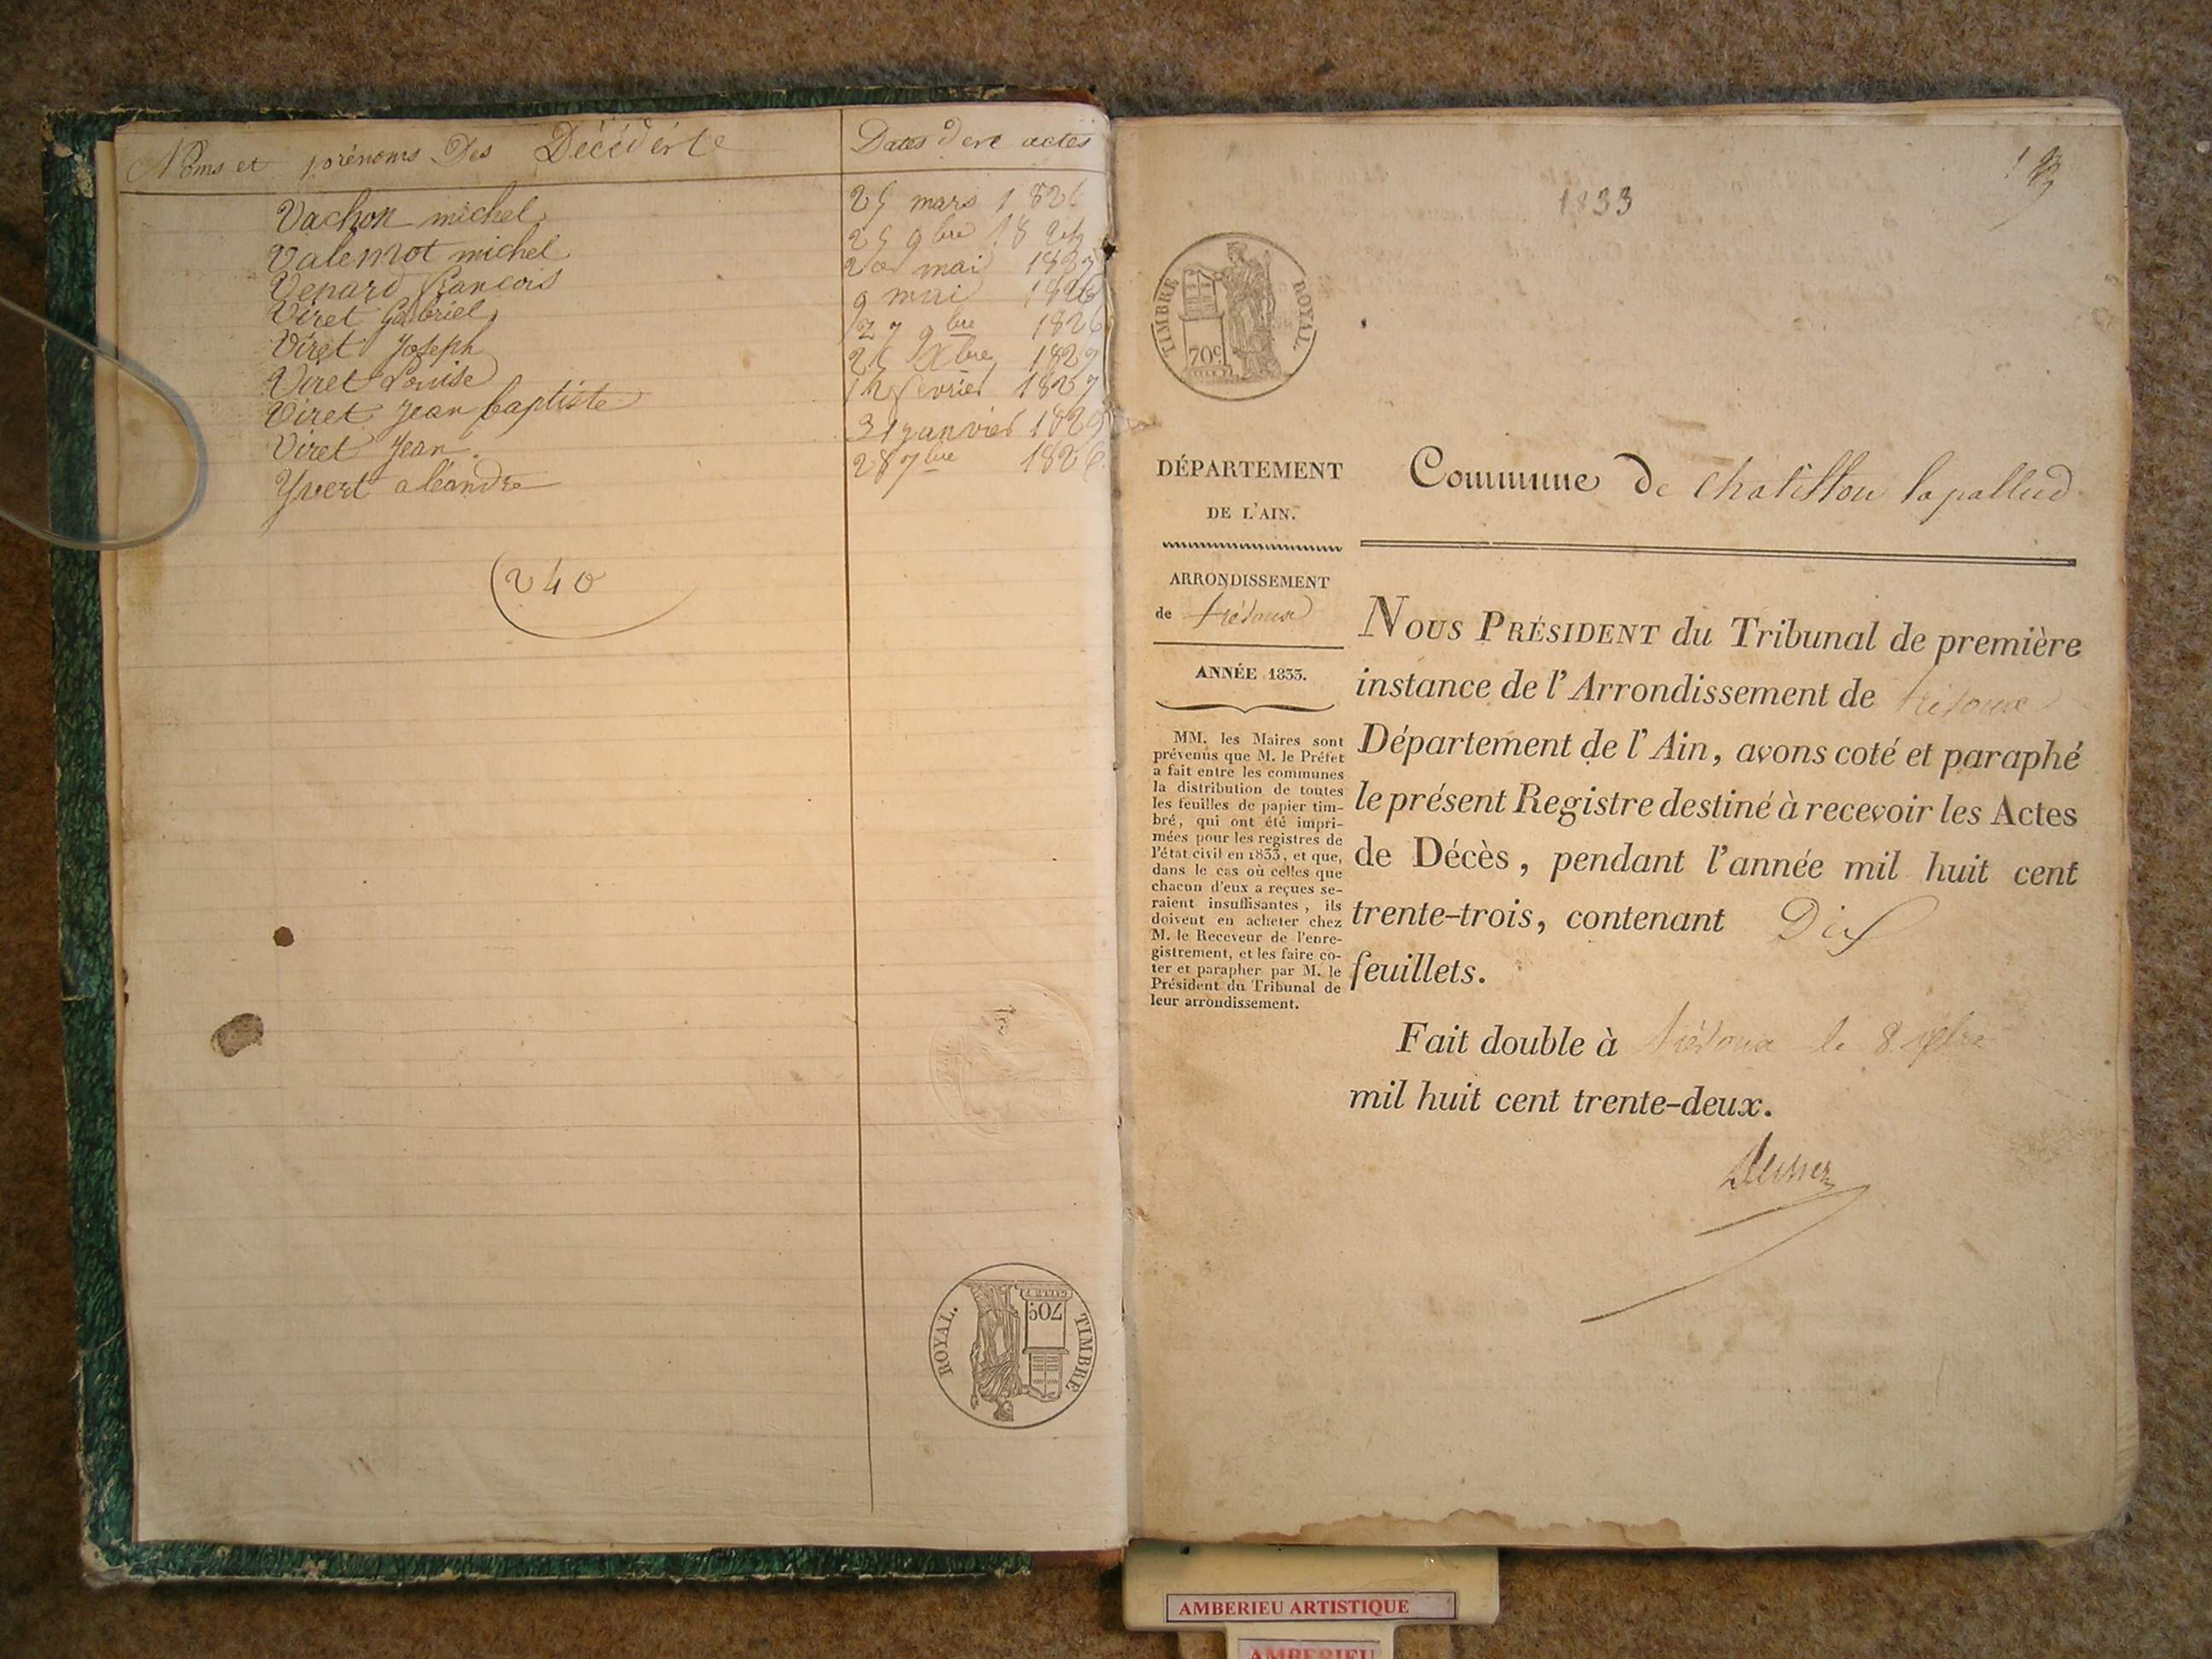 Noms et prénoms Des Décédérés
Dates des actes
Vachon michel
25 mars 1826
Valernot michel
25 9bre 18
Venard François
20 mai 18
Viret Gabriel
9 mai 1826
Viret Joseph
27 9bre 1826
Viret Louise
Xbre 1829
Viret Jean baptiste
12 fevrier 1827
Viret Jean
31 janvier 1829
Yvert aléandre
28 7bre 1826
240
TIMBRE ROYAL.
70c.
1833
1
TIMBRE ROYAL.
70c.
DÉPARTEMENT
DE L'AIN.
Commune De chatillon lapallud
ARRONDISSEMENT
de trévoux
ANNÉE 1833.
MM. les Maires sont
prévenus que M. le Préfet
a fait entre les communes
la distribution de toutes
les feuilles de papier tim-
bré, qui ont été impri-
mées pour les registres de
l'état civil en 1833, et que,
dans le cas où celles que
chacun d'eux a reçues se-
raient insuffisantes, ils
doivent en acheter chez
M. le Receveur de l'enre-
gistrement, et les faire co-
ter et parapher par M. le
Président du Tribunal de
leur arrondissement.
NOUS PRÉSIDENT du Tribunal de première
instance de l'Arrondissement de trévoux
Département de l'Ain, avons coté et paraphé
le présent Registre destiné à recevoir les Actes
de Décès, pendant l'année mil huit cent
trente-trois, contenant Dix
feuillets.
Fait double à trévoux le 8
mil huit cent trente-deux.
AMBERIEU ARTISTIQUE
AMBERIEU